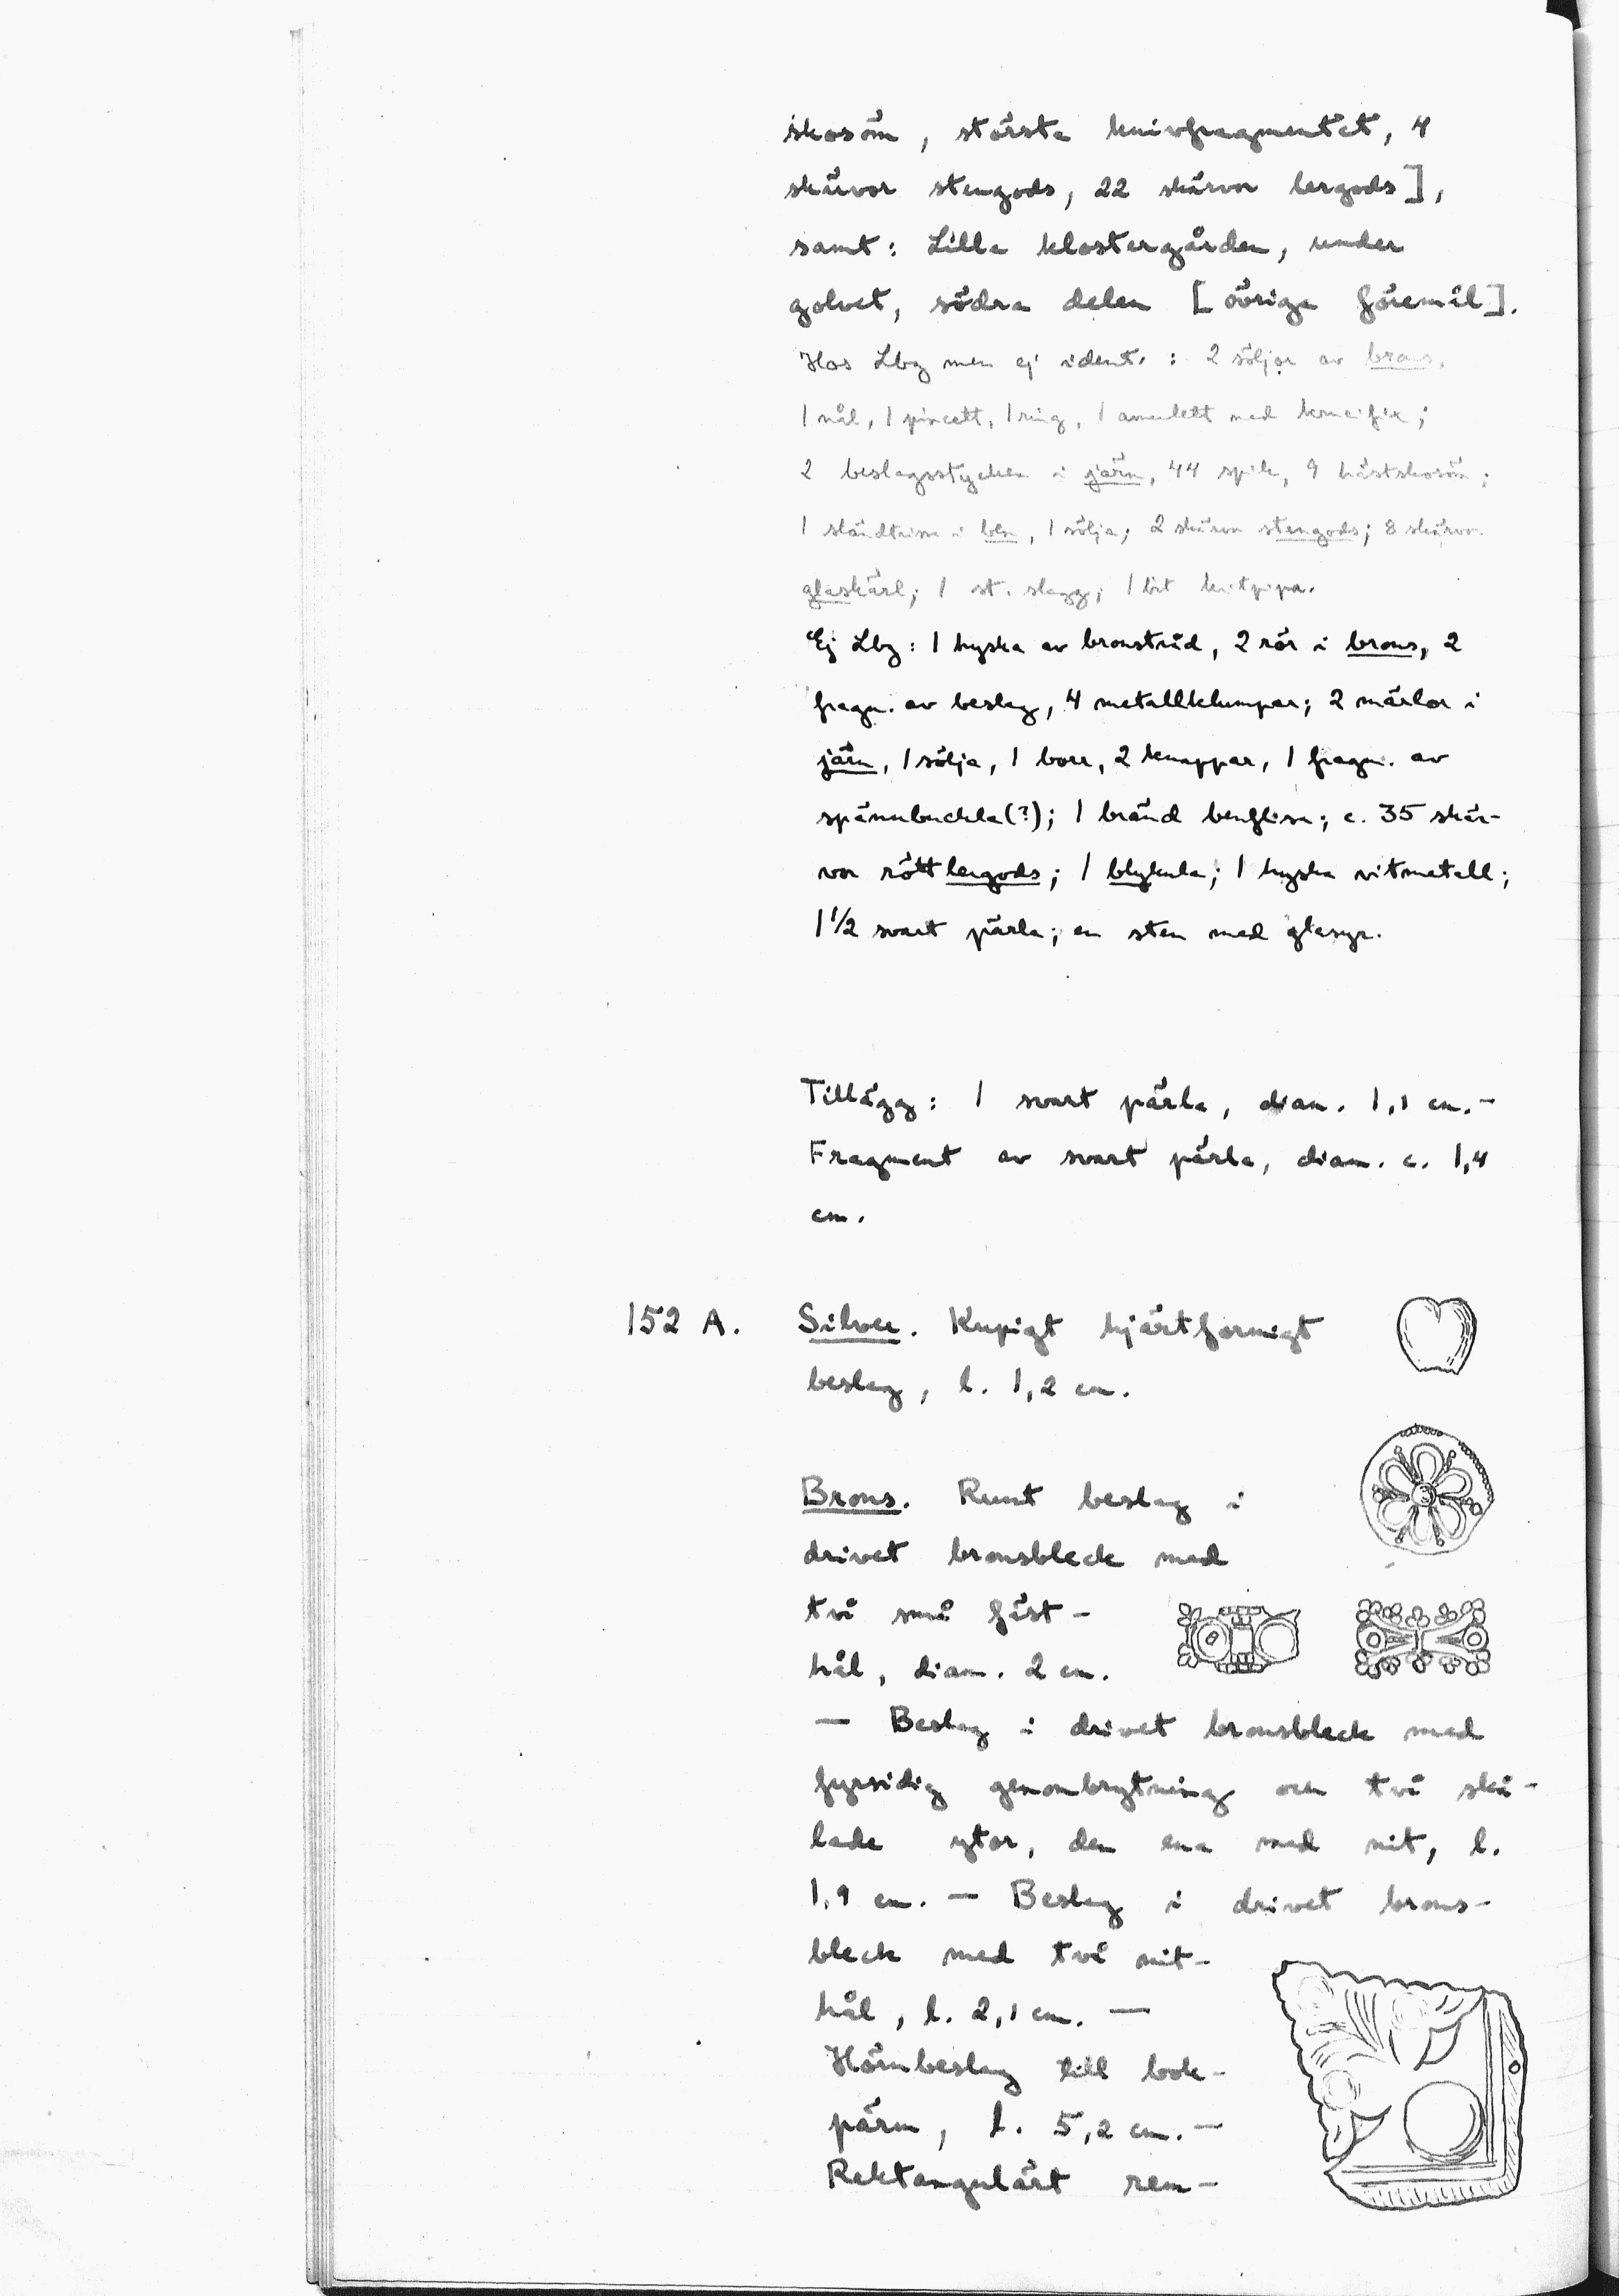 skosöm, största knivfragmentet, 4
skärvor stengods, 22 skärvor lergods],
samt: Lilla klostergården, under
golvet, södra delen [övriga föremål].
Hos Lbg men ej ident. : 2 söljor av brons,
1 nål, 1 pincett, 1 ring, 1 amulett med krucifix;
2 beslagsstycken i järn, 44 spik, 9 hästskosöm;
1 sländtrissa i ben, 1 sölja; 2 skärvor stengods; 8 skärvor
glaskärl; 1 st. slagg; 1 bit kritpipa.
Ej Lbg: 1 hyska av bronstråd, 2 rör i brons, 2
fragm. av beslag, 4 metallklumpar; 2 märlor i
järn, 1 sölja, 1 borr, 2 knappar, 1 fragm. av
spännbuckla(?); 1 bränd benflisa; c. 35 skär-
vor rött lergods; 1 blykula; 1 hyska vitmetall;
1 1/2 svart pärla; en sten med glasyr.
Tillägg: 1 svart pärla, diam. 1,1 cm. -
Fragment av svart pärla, diam. c. 1,4
cm.
152 A. Silver. Kupigt hjärtformigt
beslag, l. 1,2 cm.
Brons. Runt beslag i
drivet bronsbleck med
två små fäst-
hål, diam. 2 cm.
— Beslag i drivet bronsbleck med
fyrsidig genombrytning och två skå-
lade ytor, den ena med nit, l.
1,9 cm. — Beslag i drivet brons-
bleck med två nit-
hål, l. 2,1 cm. —
Hörnbeslag till bok-
pärm, l. 5,2 cm. —
Rektangulärt rem-